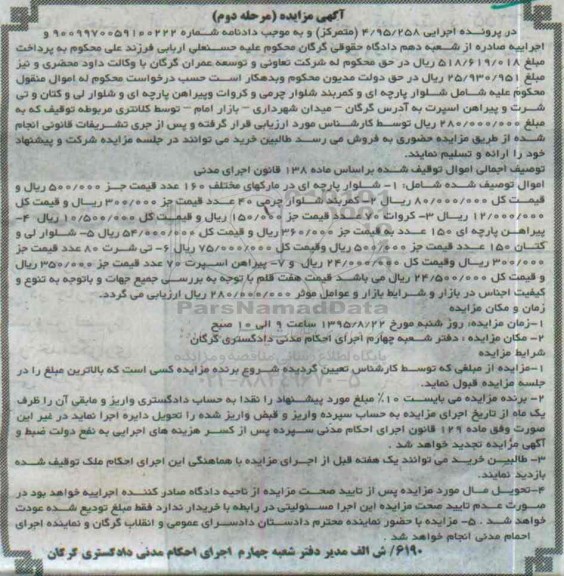 آگهی مزایده (مرحله دوم)
در پرونده اجرایی ۴/۹۵/۲۵۸ (متمرکز) و به موجب دادنامه شماره ۹۰۰۹۹۷۰۰۵۹۱۰۰۲۲۲ و
اجراییه صادره از شعبه دهم دادگاه حقوقی گرگان محکوم علیه حسنعلی اربابی فرزند علی محکوم به پرداخت
مبلغ ۵۱۸/۶۱۹/۰۱۸ ریال در حق محکوم له شرکت تعاونی و توسعه عمران گرگان با وکالت داود محضری و نیز
مبلغ ۲۵/۹۳۰/۹۵۱ ریال در حق دولت مدیون محکوم وبدهکار است حسب درخواست محکوم له اموال منقول
محکوم علیه شامل شلوار پارچه ای و کمربند شلوار چرمی و کروات وپیراهن پارچه ای و شلوار لی و کتان و تی
شرت و پیراهن اسپرت به آدرس گرگان – میدان شهرداری – بازار امام – توسط کلانتری مربوطه توقیف که به
مبلغ ۲۸۰/۰۰۰/۰۰۰ ریال توسط کارشناس مورد ارزیابی قرار گرفته و پس از جری تشریفات قانونی انجام
شده از طریق مزایده حضوری به فروش می رسد طالبین خرید می توانند در جلسه مزایده شرکت و پیشنهاد
خود را ارائه و تسلیم نمایند.
توصیف اجمالی اموال توقیف شده براساس ماده ۱۳۸ قانون اجرای مدنی
اموال توصیف شده شامل: ۱- شلوار پارچه ای در مارکهای مختلف ۱۶۰ عدد قیمت جز ۵۰۰/۰۰۰ ریال و
قیمت کل ۸۰/۰۰۰/۰۰۰ ریال ۲- کمربند شلوار چرمی ۴۰ عدد قیمت جز ۳۰۰/۰۰۰ ریال و قیمت کل
۱۲/۰۰۰/۰۰۰ ریال ۳- کروات ۷۰ عدد قیمت جز ۱۵۰/۰۰۰ ریال و قیمت کل ۱۰/۵۰۰/۰۰۰ ریال ۴-
پیراهن پارچه ای ۱۵۰ عدد به قیمت جز ۳۶۰/۰۰۰ ریال و قیمت کل ۵۴/۰۰۰/۰۰۰ ریال ۵- شلوار لی و
کتان ۱۵۰ عدد قیمت جز ۵۰۰/۰۰۰ ریال وقیمت کل ۷۵/۰۰۰/۰۰۰ ریال ۶- تی شرت ۸۰ عدد قیمت جز
۳۰۰/۰۰۰ ریال وقیمت کل ۲۴/۰۰۰/۰۰۰ و ۷- پیراهن اسپرت ۷۰ عدد قیمت جز ۳۵۰/۰۰۰ ریال
و قیمت کل ۲۴/۵۰۰/۰۰۰ ریال می باشد قیمت هفت قلم با توجه به بررسی جمیع جهات و باتوجه به تنوع و
کیفیت اجناس در بازار و شرایط بازار و عوامل موثر ۲۸۰/۰۰۰/۰۰۰ ریال ارزیابی می گردد.
زمان و مکان مزایده
۱-زمان مزایده: روز شنبه مورخ ۱۳۹۵/۸/۲۲ ساعت ۹ الی ۱۰ صبح
۲- مکان مزایده : دفتر شعبه چهارم اجرای احکام مدنی دادگستری گرگان
شرایط مزایده
۱-مزایده از مبلغی که توسط کارشناس تعیین گردیده شروع برنده مزایده کسی است که بالاترین مبلغ را در
جلسه مزایده قبول نماید.
۲- برنده مزایده می بایست ۱۰٪ مبلغ مورد پیشنهاد را نقدا به حساب دادگستری واریز و مابقی آن را ظرف
یک ماه از تاریخ اجرای مزایده به حساب سپرده واریز و قبض واریز شده را تحویل دایره اجرا نماید در غیر این
صورت وفق ماده ۱۲۹ قانون اجرای احکام مدنی سپرده پس از کسر هزینه های اجرایی به نفع دولت ضبط و
آگهی مزایده تجدید خواهد شد .
۳- طالبین خرید می توانند یک هفته قبل از اجرای مزایده با هماهنگی این اجرای احکام ملک توقیف شده
بازدید نمایند.
۴-تحویل مال مورد مزایده پس از تایید صحت مزایده از ناحیه دادگاه صادر کننده اجراییه خواهد بود در
صورت عدم تایید صحت مزایده این اجرا مسئولیتی در رابطه با خریدار ندارد فقط مبلغ تودیع شده عودت
خواهد شد . ۵- مزایده با حضور نماینده محترم دادستان دادسرای عمومی و انقلاب گرگان و نماینده اجرای
احمام مدنی انجام خواهد شد .
۶۱۹۰/ ش الف مدیر دفتر شعبه چهارم اجرای احکام مدنی دادگستری گرگان
ParsNamadData
پایگاه اطلاع رسانی مناقصه و مزایده